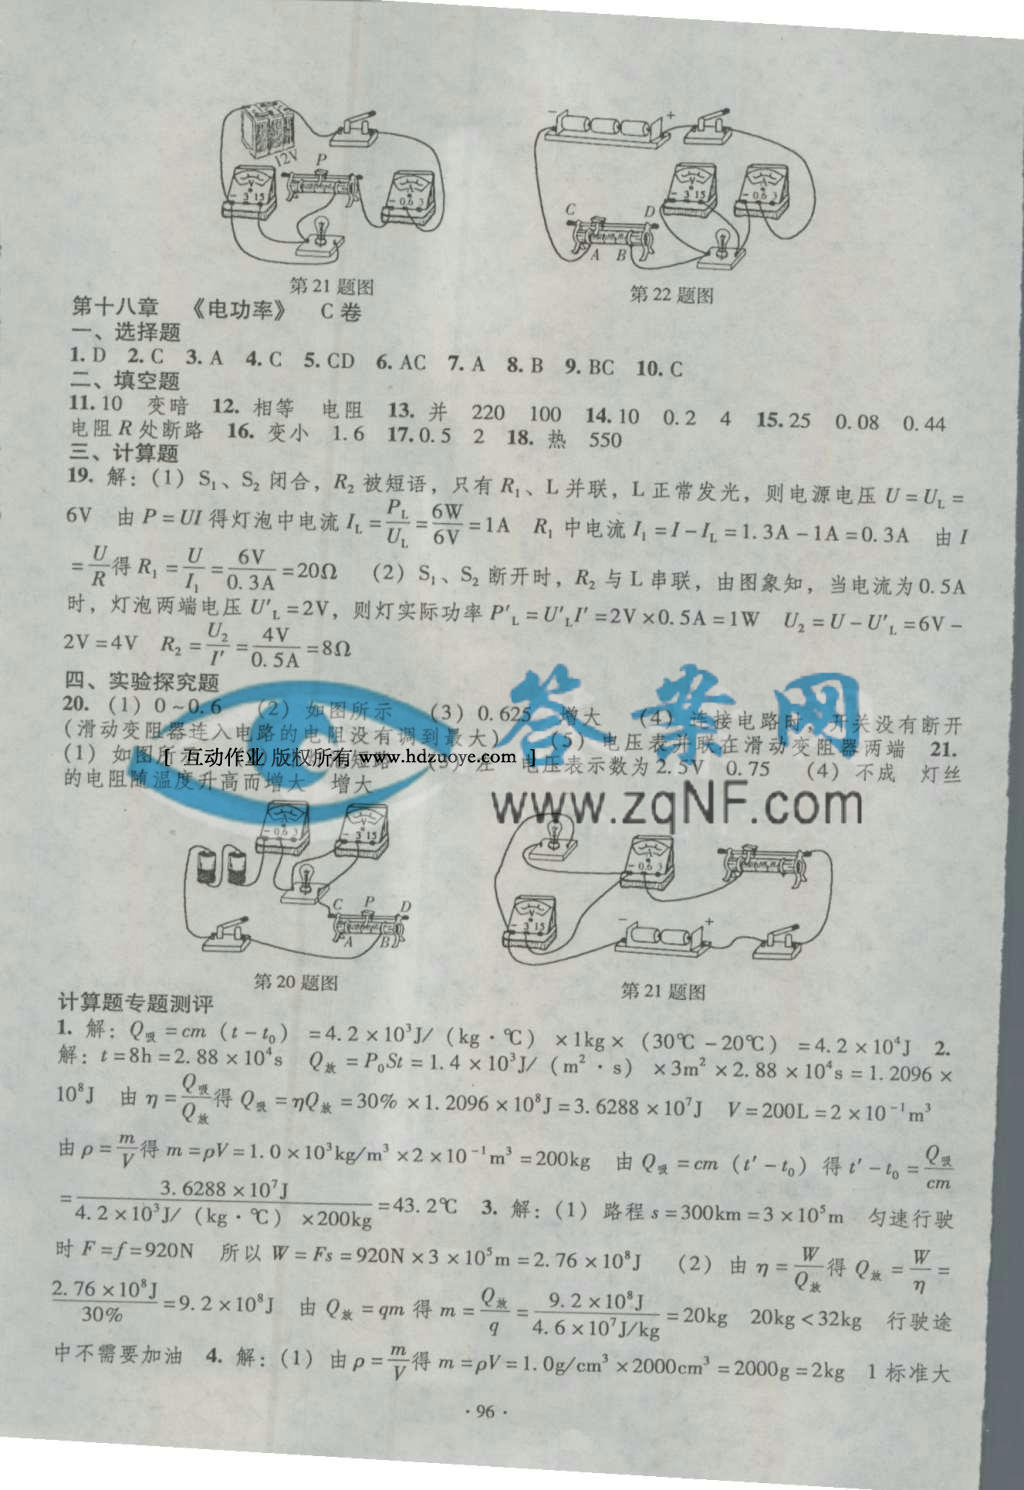 12V
P
3 15
0.6 3
第21题图
− +
C D
A B
3 15
0.6 3
第22题图
第十八章 《电功率》 C卷
一、选择题
1. D 2. C 3. A 4. C 5. CD 6. AC 7. A 8. B 9. BC 10. C
二、填空题
11. 10 变暗 12. 相等 电阻 13. 并 220 100 14. 10 0.2 4 15. 25 0.08 0.44
电阻R处断路 16. 变小 1.6 17. 0.5 2 18. 热 550
三、计算题
19. 解：(1) S₁、S₂ 闭合，R₂ 被短语，只有 R₁、L 并联，L 正常发光，则电源电压 U=U_L=
6V 由 P=UI 得灯泡中电流 I_L=P_L/U_L=6W/6V=1A R₁ 中电流 I₁=I-I_L=1.3A-1A=0.3A 由 I
=U/R得 R₁=U/I₁=6V/0.3A=20Ω (2) S₁、S₂ 断开时，R₂ 与 L 串联，由图象知，当电流为 0.5A
时，灯泡两端电压 U′_L=2V，则灯实际功率 P′_L=U′_LI′=2V×0.5A=1W U₂=U-U′_L=6V-
2V=4V R₂=U₂/I′=4V/0.5A=8Ω
四、实验探究题
20. (1) 0~0.6 (2) 如图所示 (3) 0.625 增大 (4) 连接电路时，开关没有断开
(滑动变阻器连入电路的电阻没有调到最大) (5) 电压表并联在滑动变阻器两端 21.
(1) 如图所示 短路 (3) 左 电压表示数为2.5V 0.75 (4) 不成 灯丝
[ 互动作业 版权所有 www.hdzuoye.com ]
的电阻随温度升高而增大 增大
答案网
www.zqNF.com
0.6 3
3 15
C P D
A B
第20题图
0.6 3
3 15
− +
第21题图
计算题专题测评
1. 解：Q吸=cm (t-t₀) =4.2×10³J/ (kg·℃) ×1kg× (30℃-20℃) =4.2×10⁴J 2.
解：t=8h=2.88×10⁴s Q放=P₀St=1.4×10³J/ (m²·s) ×3m²×2.88×10⁴s=1.2096×
10⁸J 由 η=Q吸/Q放得 Q吸=ηQ放=30%×1.2096×10⁸J=3.6288×10⁷J V=200L=2×10⁻¹m³
由 ρ=m/V得 m=ρV=1.0×10³kg/m³×2×10⁻¹m³=200kg 由 Q吸=cm (t′-t₀) 得 t′-t₀=Q吸/cm
=3.6288×10⁷J/4.2×10³J/ (kg·℃) ×200kg=43.2℃ 3. 解：(1) 路程 s=300km=3×10⁵m 匀速行驶
时 F=f=920N 所以 W=Fs=920N×3×10⁵m=2.76×10⁸J (2) 由 η=W/Q放得 Q放=W/η=
2.76×10⁸J/30%=9.2×10⁸J 由 Q放=qm 得 m=Q放/q=9.2×10⁸J/4.6×10⁷J/kg=20kg 20kg<32kg 行驶途
中不需要加油 4. 解：(1) 由 ρ=m/V得 m=ρV=1.0g/cm³×2000cm³=2000g=2kg 1 标准大
· 96 ·